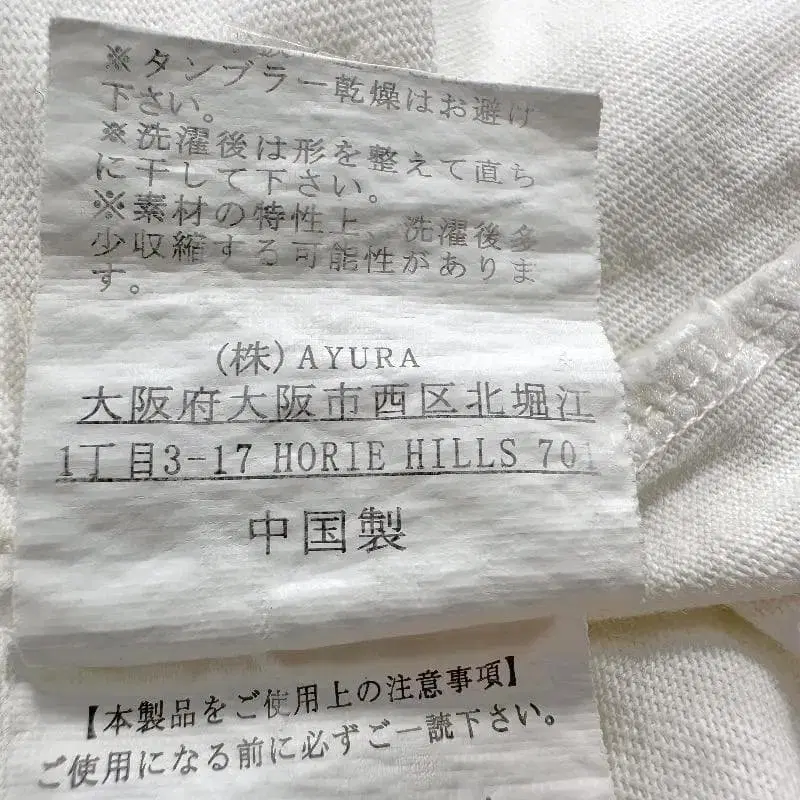 ※タンブラー乾燥はお避け
下さい。
※洗濯後は形を整えて直ち
に干して下さい。
※素材の特性上、洗濯後多
少収縮する可能性がありま
す。
(株)AYURA
大阪府大阪市西区北堀江
1丁目3-17 HORIE HILLS 701
中国製
【本製品をご使用上の注意事項】
ご使用になる前に必ずご一読下さい。